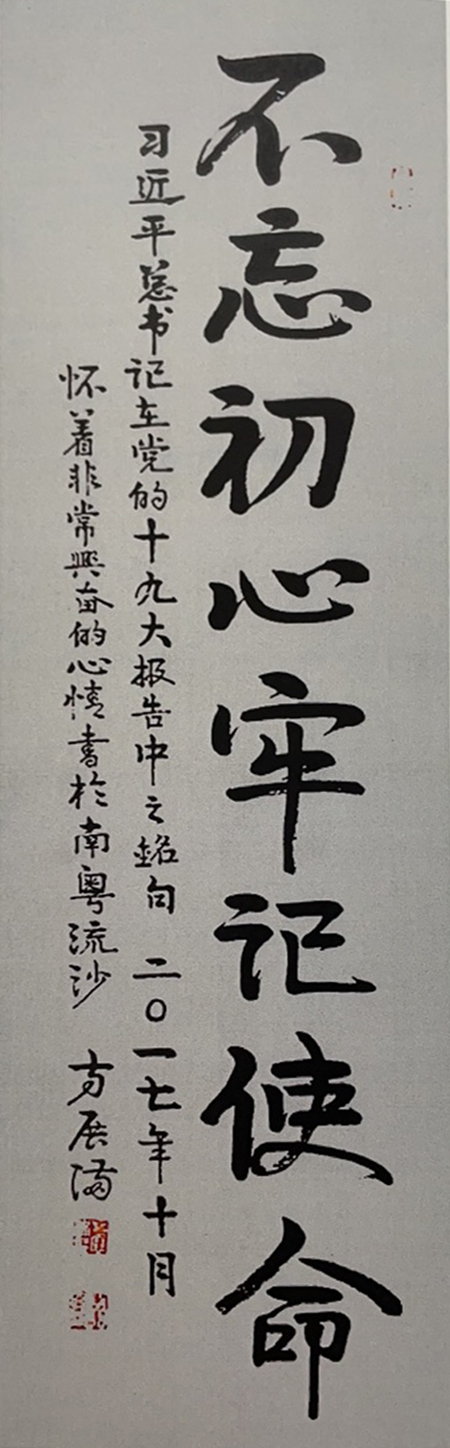 不忘初心牢记使命
习近平总书记在党的十九大报告中之銘句 二〇一七年十月
怀着非常興奋的心情書於南粤流沙 方展满